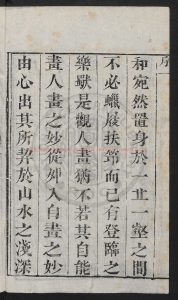 序
和宛然置身於一丘一壑之間
不必蠟屐扶筇而已有登臨之
樂歟是觀人畫猶不若其自能
畫人畫之妙從外入自畫之妙
由心出其所契於山水之淺深